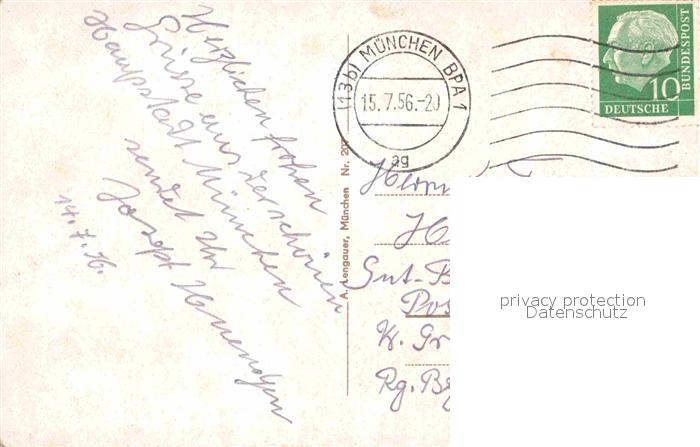 Herzlichen frohen
Grüsse aus der schönen
Hauptstadt München
sendet Ihr
Josept
14.7.56.
A. Lengauer, München Nr. 207
(13b) MÜNCHEN BPA 1
15.7.56.-20
ag
10
DEUTSCHE
BUNDESPOST
Herrn
H
Gut-B
Pos
K. Gr
Rg. Be
privacy protection
Datenschutz